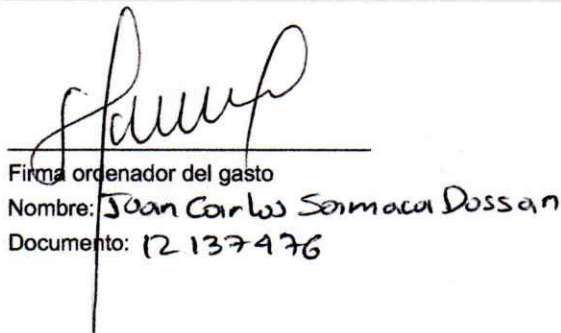 Firma ordenador del gasto
Nombre: Juan Carlos Samaca Dossan
Documento: 12137476